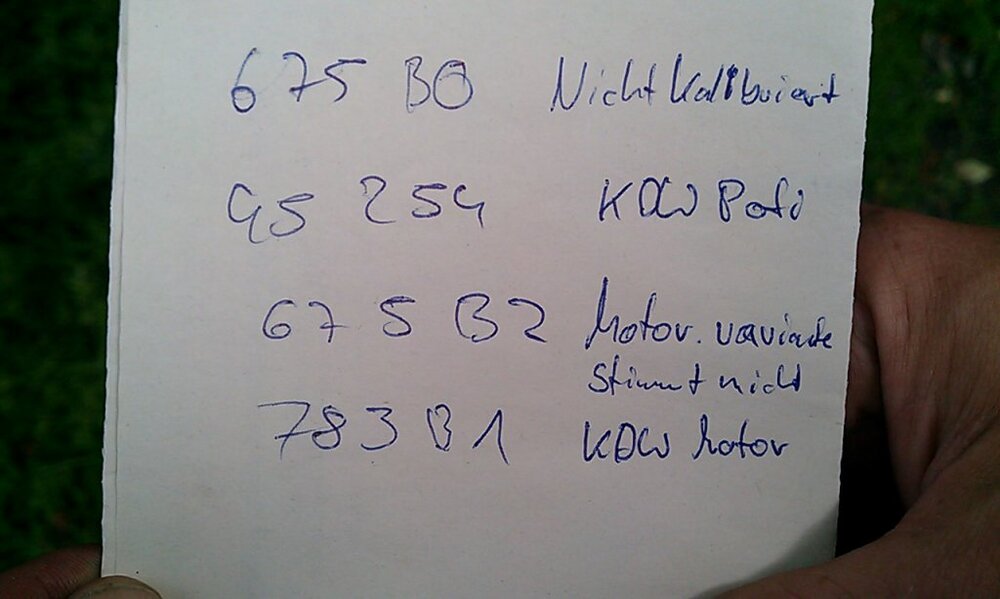 675 B0 Nicht Kalibriert
95 254 KDW Pofi
675 B2 Motor. variante
Stimmt nicht
783 B1 KDW Motor